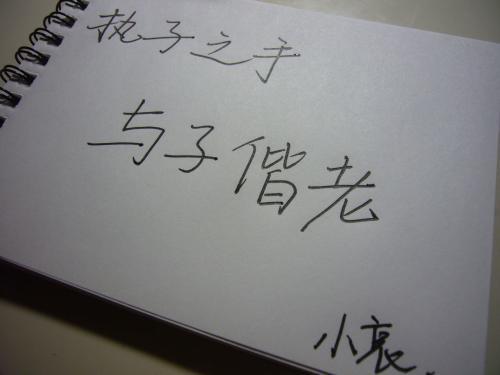 执子之手
与子偕老
小哀